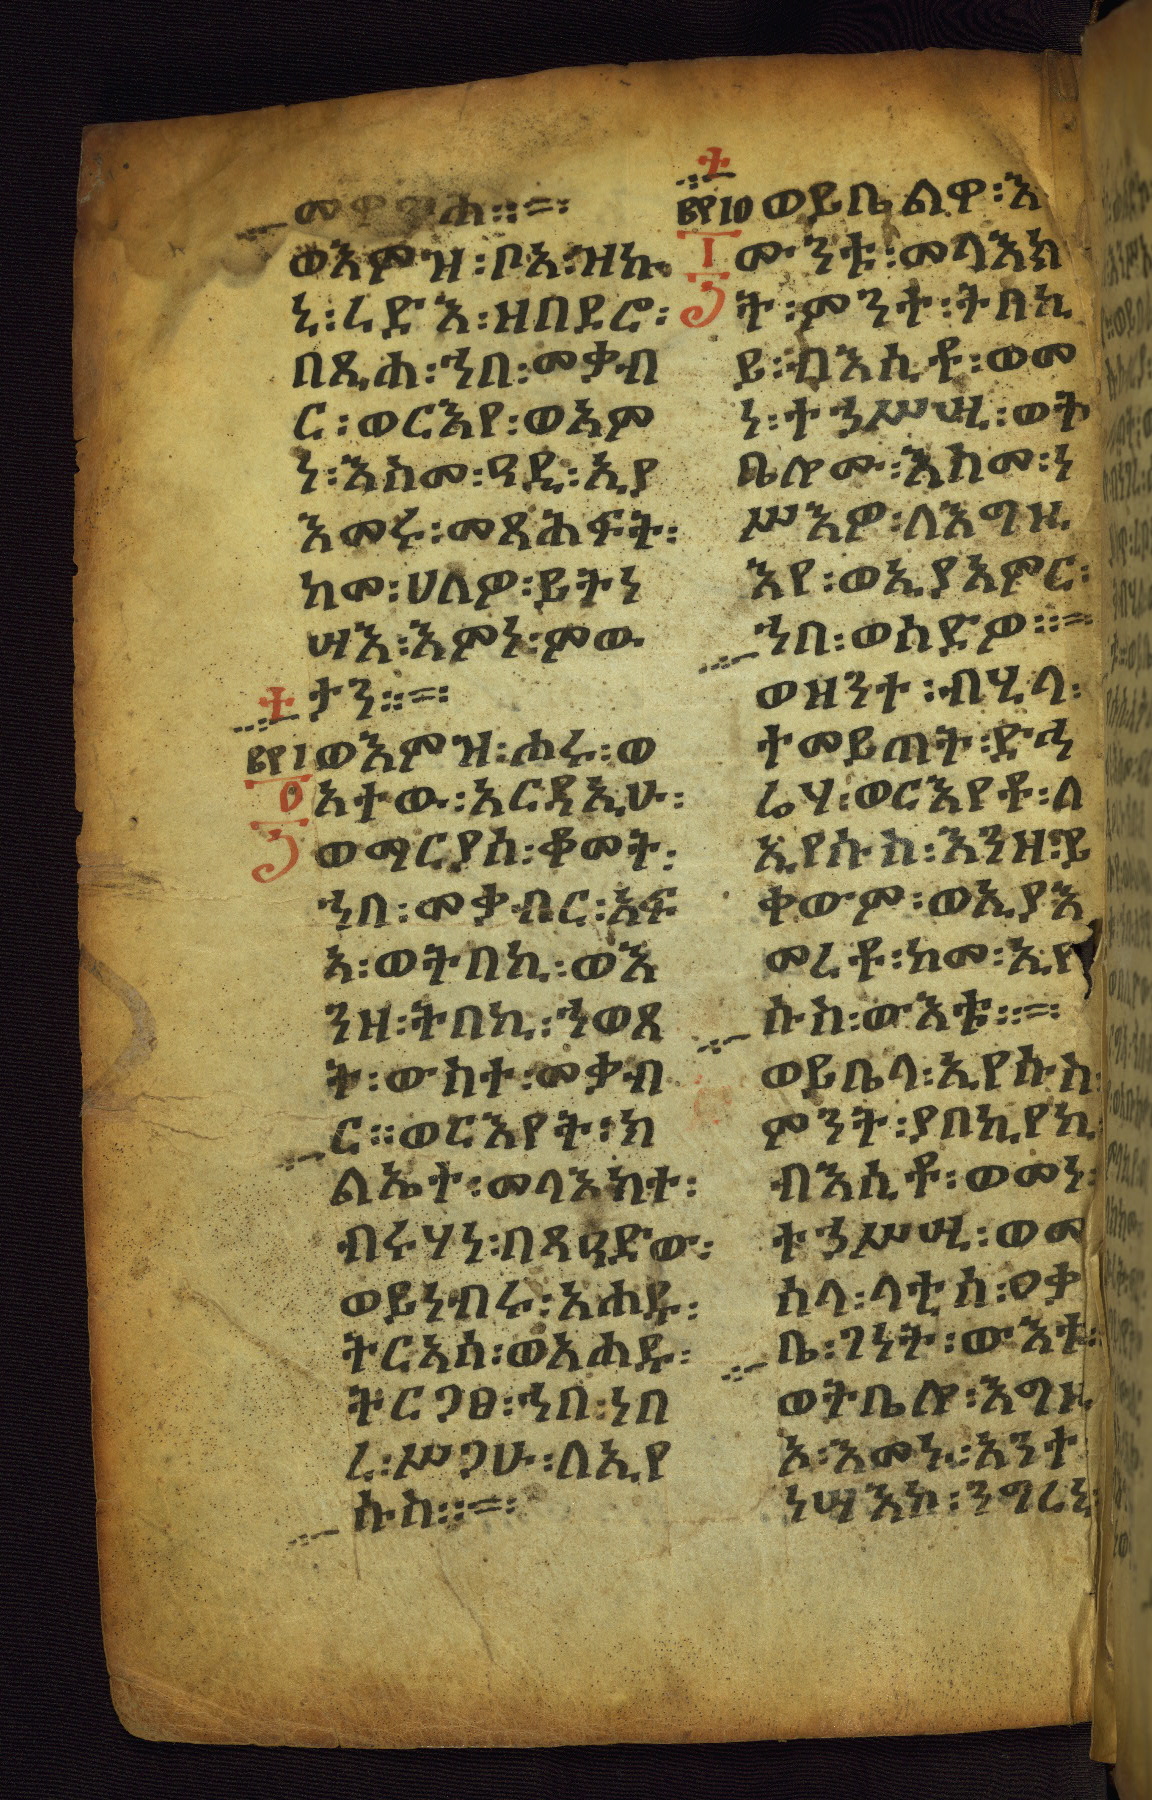 መዋጥሐ።=፡
ወእምዝ፡ቦአ፡ዝኩ
ኒ፡ረድእ፡ዘበደሮ፡
በጺሐ፡ኀበ፡መቃብ
ር፡ወርእየ፡ወአም
ነ፡እስመ፡ዓዲ፡ኢያ
እመሩ፡መጻሕፍት፡
ከመ፡ሀለዎ፡ይትነ
ሣእ፡እምነ፡ምው
ታን።=፡
ወእምዝ፡ሐሩ፡ወ
አተው፡አርዳኢሁ፡
ወማርያስ፡ቆመት፡
ኀበ፡መቃብር፡አፍ
አ፡ወትበኪ፡ወእ
ንዘ፡ትበኪ፡ኀወጸ
ት፡ውስተ፡መቃብ
ር።ወርእየት፡ክ
ልኤተ፡መላእክተ፡
ብሩሃነ፡በጻዓድው፡
ወይነብሩ፡አሐዱ፡
ትርአስ፡ወአሐዱ፡
ትርጋፀ፡ኀበ፡ነበ
ረ፡ሥጋሁ፡ለኢየ
ሱስ።=፡
ወይቤልዋ፡እ
ሙንቱ፡መላእክ
ት፡ምንት፡ትበኪ
ይ፡ብእሲቶ፡ወመ
ነ፡ተኃሥሢ፡ወት
ቤሎሙ፡እስመ፡ነ
ሥእዎ፡ለእግዚ
እየ፡ወኢያአምር፡
ኀበ፡ወስድዎ።=
ወዘንተ፡ብሂላ፡
ተመይጠት፡ድኅ
ሬሃ፡ወርእየቶ፡ለ
ኢየሱስ፡እንዘ፡ይ
ቀውም፡ወኢያእ
መረቶ፡ከመ፡ኢየ
ሱስ፡ውእቱ።=፡
ወይቤላ፡ኢየሱስ፡
ምንት፡ያበኪየኪ
ብእሲቶ፡ወመነ፡
ተኃሥሢ፡ወመ
ስላ፡ላቲ፡ሰ፡ዐቃ
ቤ፡ገነት፡ውእቱ፡
ወትቤሎ፡እግዚ
አ፡እመኑ፡አንተ
ነሣእኮ፡ንግረኒ፡